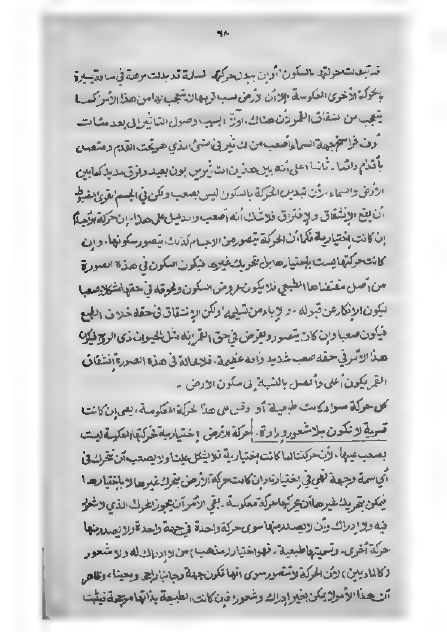 ٦٨
قد تبدلت حركتها بالسكون أو إن تبدل حركتها المسلمة قد بدلت مرجعة في ساعة يسيرة
بحركة الأخرى المعكوسة. إلا أن الأرض
يتعجب من إنشقاق القمر لأن هناك. أولا السبب وصول التأثير إلى بعد مئات
ألوف فراسخ بجهة السماء أصعب من
بأقدام دائما. ثانيا على أنه بين هذين التأثيرين بون بعيد وفرق مديد كما بين
الأرض والسماء. لأن تبديل الحركة بالسكون ليس بصعب ولكن في الجسم القوي المضبوط
أن يقع الإنشقاق والإفتراق فلا شك أنه أصعب والدليل على هذا. إن حركة الأرض
إن كانت إختيارية فكما أن الحركة تتصور من الأجسام كذلك يتصور سكونها. وإن
كانت حركتها ليست بإختيارها بل بتحريك غيرها فيكون السكون في هذه الصورة
من أصل مقتضاها الطبعي فلا يكون عروض السكون ولحوقه في حقها مشكلا صعبا
فيكون الإنكار عن قبوله. والإباء من تسليمه ولكن الإنشقاق في حقه خلاف الطبع
فيكون صعبا وإن كانت يتصور ويفرض في حق القمر إنه مثل الحيوان ذي الروح فيكون
هذا الأمر في حقه صعب شديد وآفة عظيمة. فلا محالة في هذه الصورة إنشقاق
القمر يكون أعلى وأفضل بالنسبة إلى سكون الأرض.
كل حركة سواء كانت طبيعية أو وقس على هذا الحركة المعكوسة. يعني إن كانت
قسرية لا تكون بلا شعور وإرادة. حركة الأرض إختيارية فحركتها المعكوسة ليست
بصعب عليها. لأن حركتها لما كانت إختيارية فلا يشكل عليها ولا يصعب أن تتحرك في
أي سمة وجهة فهي في إختيارها وإن كانت حركة الأرض بتحريك غيرها لا بإختيارها
فيمكن بتحريك غيرها أن يحركها حركة معكوسة. بقي الأمر أن تجويز المحرك الذي لا شعور
فيه ولا إدراك وأن لا يصدر منها سوى حركة واحدة في جهة واحدة ولا يصدر منها
حركة أخرى. وتسميتها طبيعية. فهو اختيار (مذهب) من لا إدراك له ولا شعور
(كالماديين) لأن الحركة لا تتصور سوى أنها تكون جهة وجانبا راجحى ومعينا. وظاهر
أن هذا الأمر لا يمكن بغير إدراك وشعور فإن كانت الطبيعة بذاتها مرجحة فيثبت